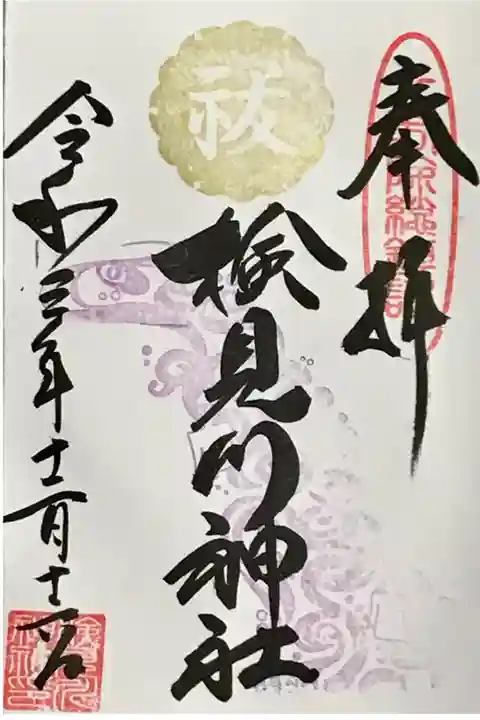 奉拝
祓
検見川神社
令和三年十二月十二日